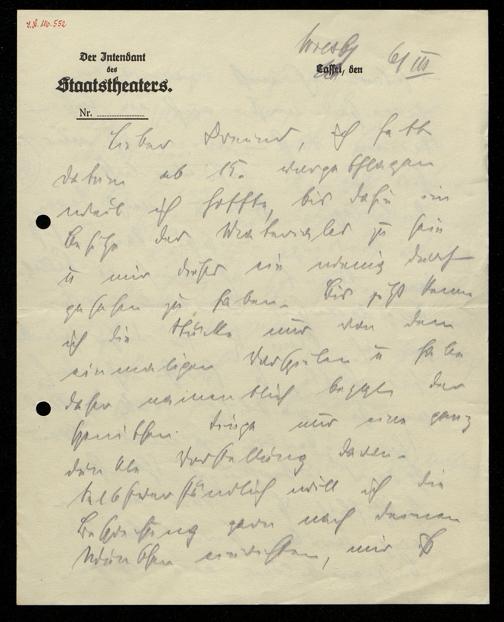 L.A. No. 552
Der Intendant
des
Staatstheaters.
Nr.
Cassel, den 6/III
Lieber Freund, ich hatte
datum ab 15. vorgeschlagen
weil ich hoffte, bis dahin im
Besitze der Materiales zu sein
u mir dieses ein wenig durch
gesehen zu haben. Bis jetzt kenne
ich die Stücke nur von dem
einmaligen Vorspielen u habe
daher namentlich bezgl. der
szenischen Dinge nur eine ganz
dunkle Vorstellung davon.
Selbstverständlich will ich die
Besetzung gern nach deinen
Wünschen einrichten, nur